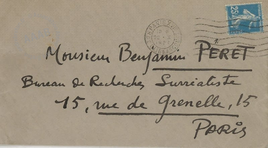 25
Monsieur Benjamin PÉRET
Bureau de Recherches Surréaliste
15, rue de Grenelle, 15
PARIS